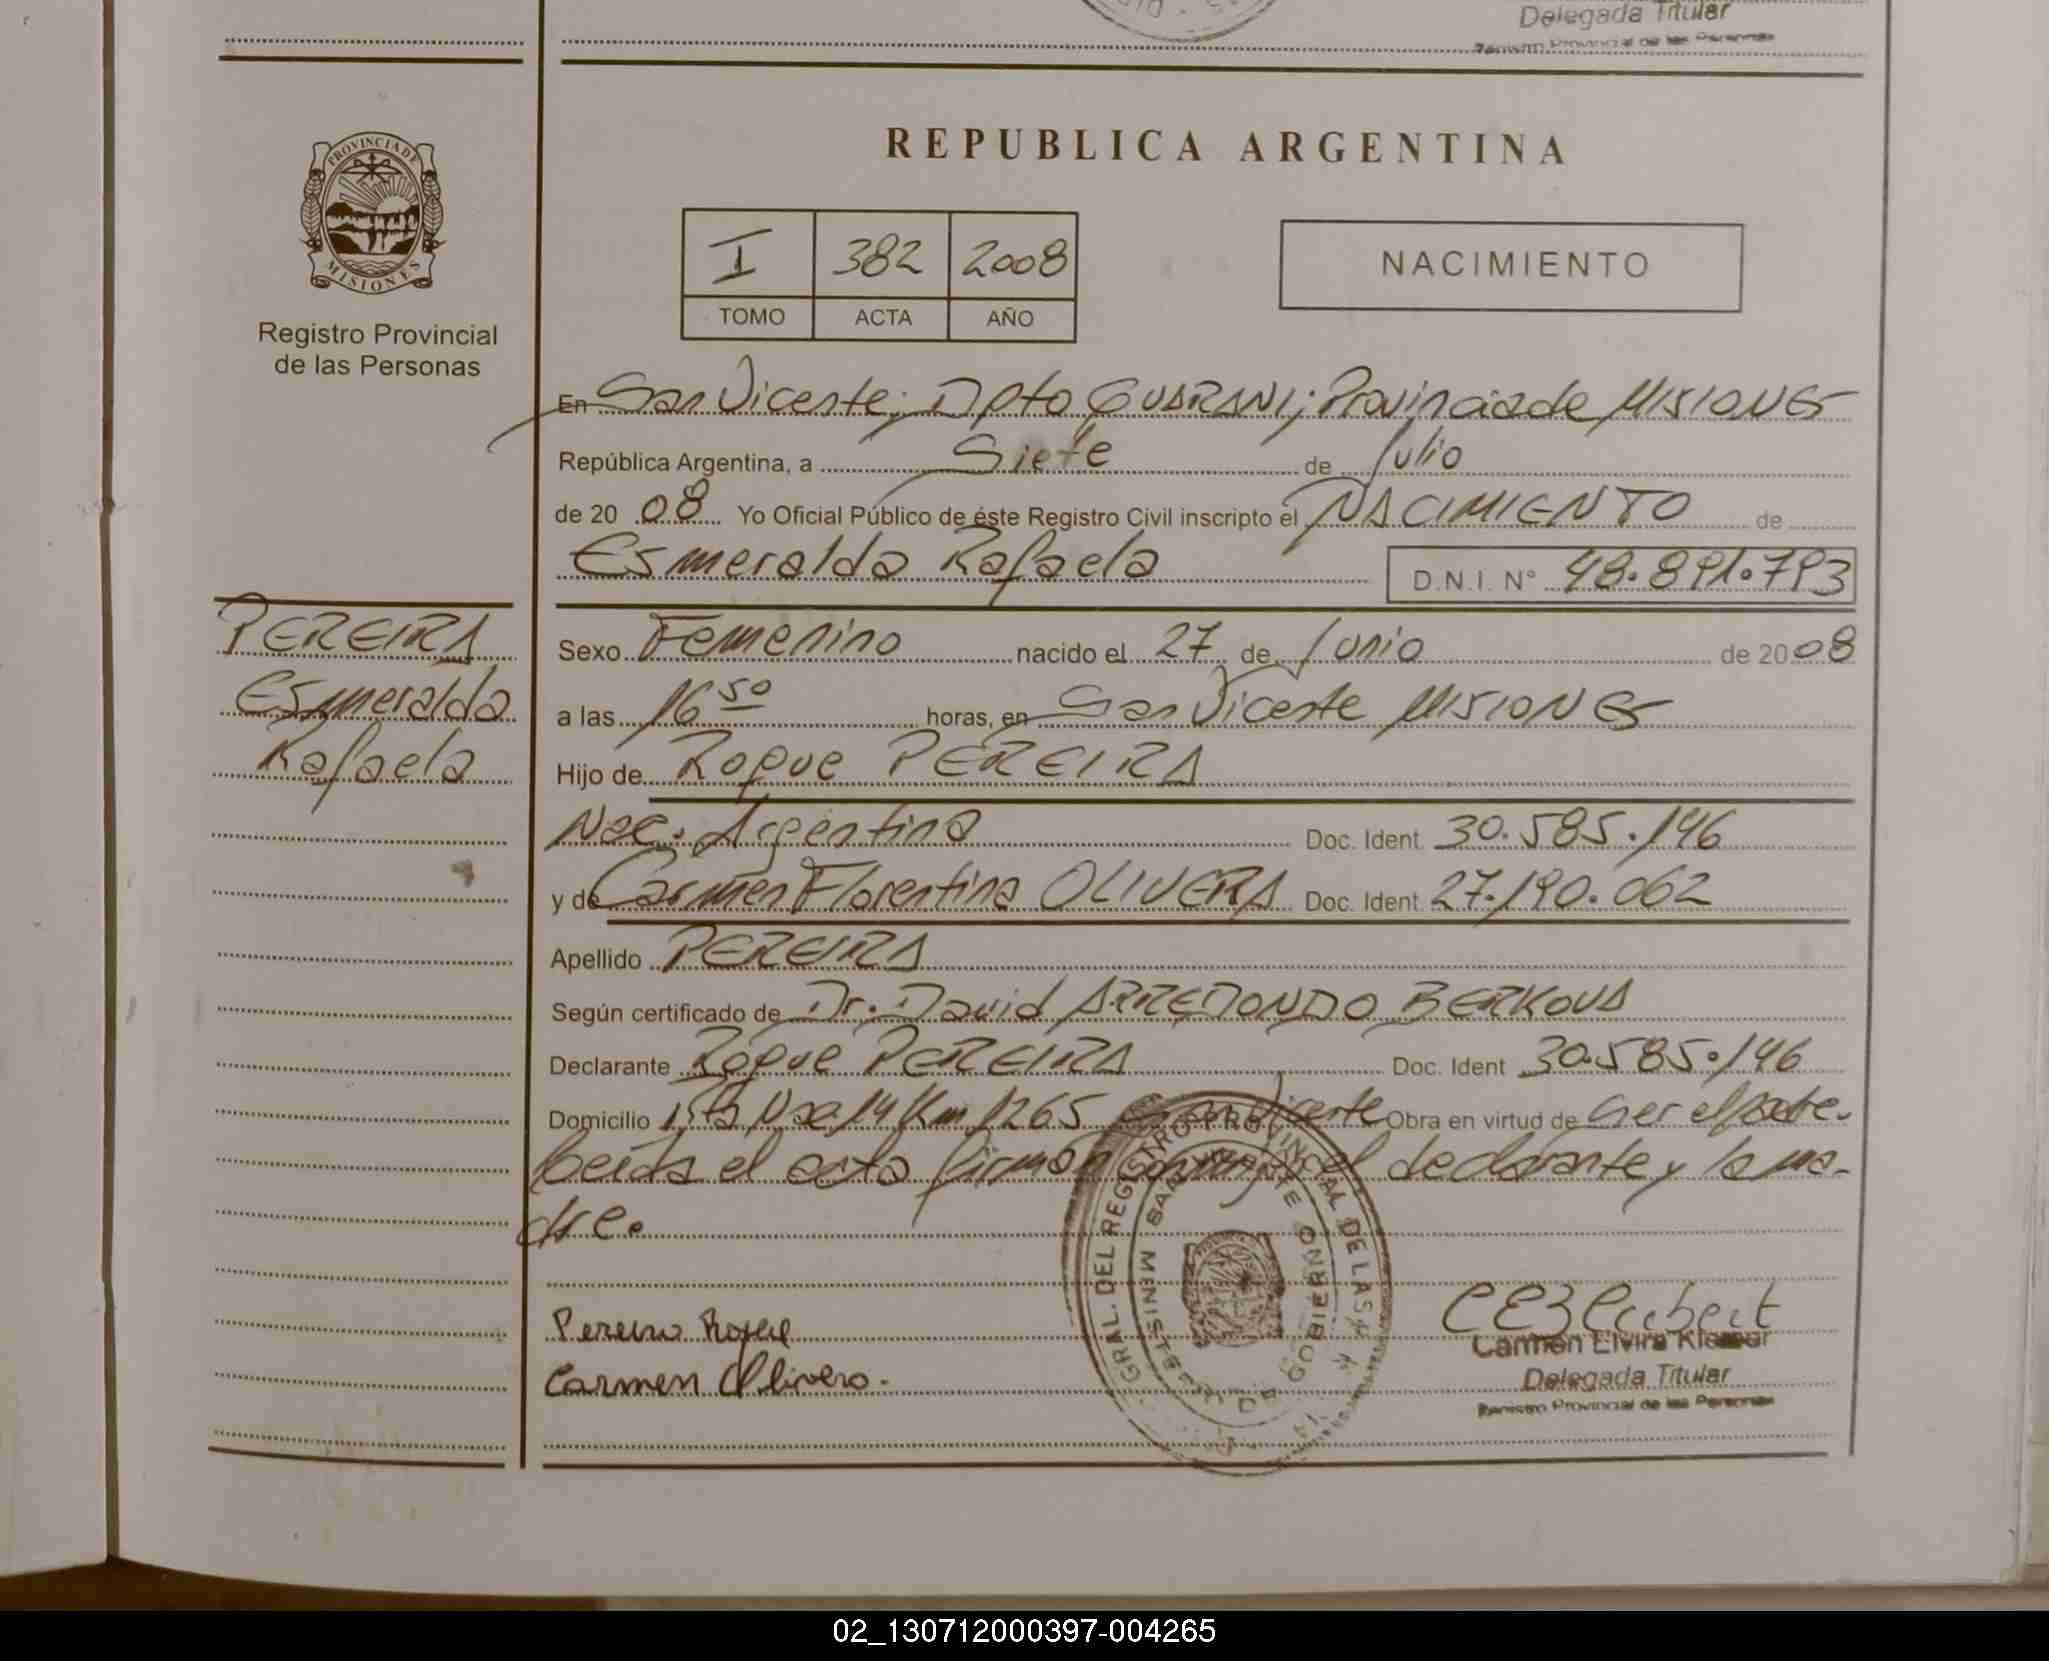 Delegada Titular
Registro Provincial de las Personas
PROVINCIA DE
MISIONES
Registro Provincial
de las Personas
REPUBLICA ARGENTINA
I 382 2008
TOMO ACTA AÑO
NACIMIENTO
En San Vicente; Dpto GUARANI; Provincia de MISIONES
República Argentina, a Siete de Julio
de 20 08 Yo Oficial Público de éste Registro Civil inscripto el NACIMIENTO de
Esmeralda Rafaela D.N.I. Nº 48.891.793
PEREIRA
Esmeralda
Rafaela
Sexo Femenino nacido el 27 de Junio de 20 08
a las 16 50 horas, en San Vicente MISIONES
Hijo de Roque PEREIRA
Nac. Argentina Doc. Ident. 30.585.146
y de Carmen Florentina OLIVERA Doc. Ident. 27.190.062
Apellido PEREIRA
Según certificado de Dr. David ARREDONDO BERKOVA
Declarante Roque PEREIRA Doc. Ident 30.585.146
Domicilio Rta Nac 14 Km 1265 San Vicente Obra en virtud de ser el padre.
Leída el acta firman conmigo el declarante y la ma-
dre.
Pereira Roque
Carmen Olivera.
GRAL. DEL REGISTRO PROVINCIAL DE LAS
SAN VICENTE
GOBIERNO
Carmen Elvira
Delegada Titular
Registro Provincial de las Personas
02_130712000397-004265